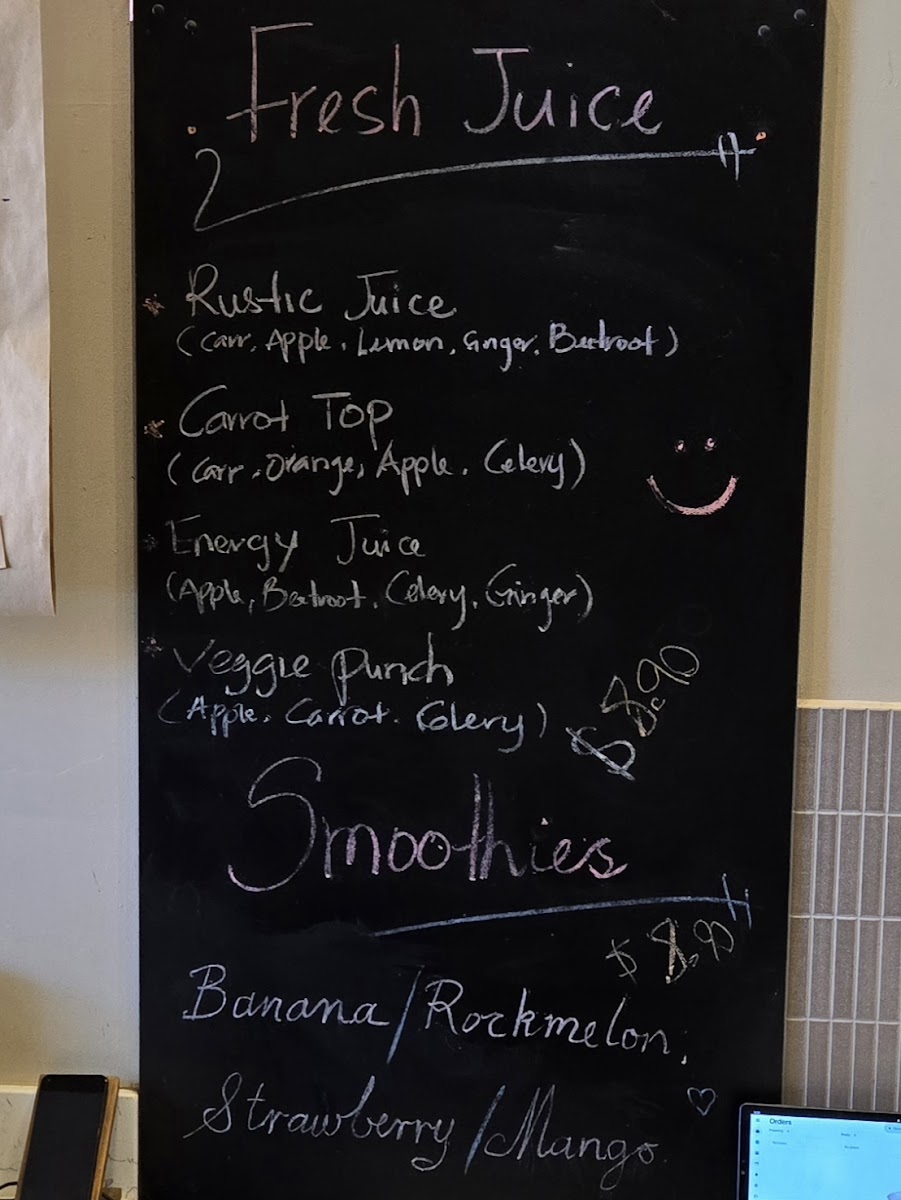 Fresh Juice
* Rustic Juice
(Carr, Apple, Lemon, Ginger, Beetroot)
* Carrot Top
(Carr, Orange, Apple, Celery)
* Energy Juice
(Apple, Beetroot, Celery, Ginger)
* Veggie punch
(Apple, Carrot, Celery)
$8.90
Smoothies
$8.90
Banana/Rockmelon,
Strawberry/Mango
Orders